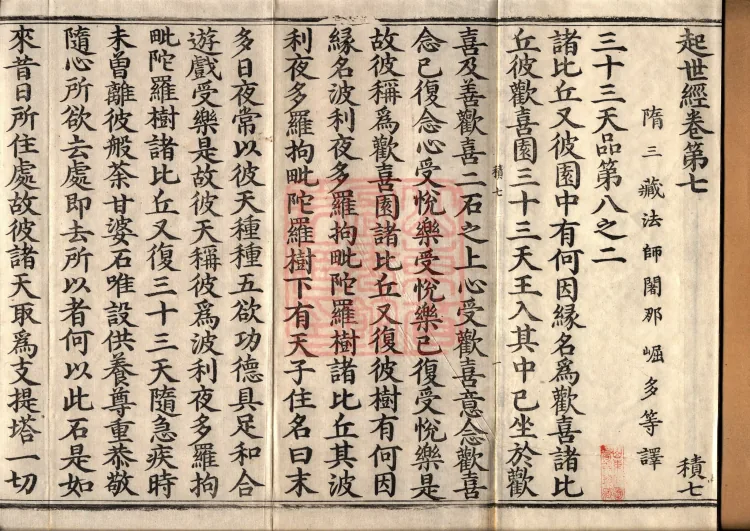 起世經卷第七 積七
隋三藏法師闍那崛多等譯
三十三天品第八之二
諸比丘又彼園中有何因緣名為歡喜諸比
丘彼歡喜園三十三天王入其中已坐於歡
積七
喜及善歡喜二石之上心受歡喜意念歡喜
念已復念心受悅樂受悅樂已復受悅樂是
故彼稱為歡喜園諸比丘又復彼樹有何因
緣名波利夜多羅拘毗陀羅樹諸比丘其波
利夜多羅拘毗陀羅樹下有天子住名曰末
多日夜常以彼天種種五欲功德具足和合
遊戲受樂是故彼天稱彼為波利夜多羅拘
毗陀羅樹諸比丘又復三十三天隨急疾時
未曾離彼般荼甘婆石唯設供養尊重恭敬
隨心所欲去處即去所以者何以此石是如
來昔日所住處故彼諸天取為支提塔一切